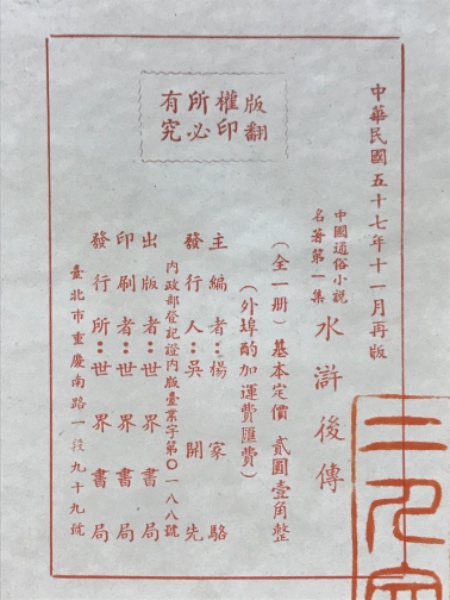 中華民國五十七年十一月再版
中國通俗小說
名著第一集
水滸後傳
(全一册)基本定價 貳圓壹角整
(外埠酌加運費匯費)
版權所有
翻印必究
主編者:楊家駱
發行人:吳開先
內政部登記證內版臺業字第〇一八八號
出版者:世界書局
印刷者:世界書局
發行所:世界書局
臺北市重慶南路一段九十九號